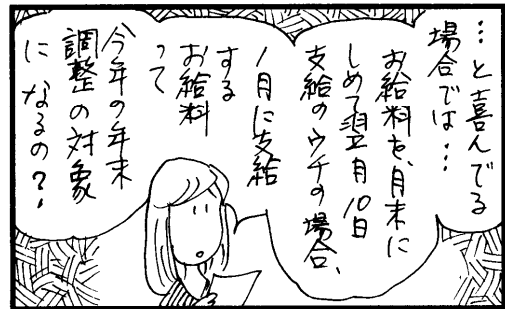 …と喜んでる
場合では…
お給料を、月末に
しめて翌月10日
支給のウチの場合、
1月に支給
する
お給料
って
今年の年末
調整の対象
になるの？